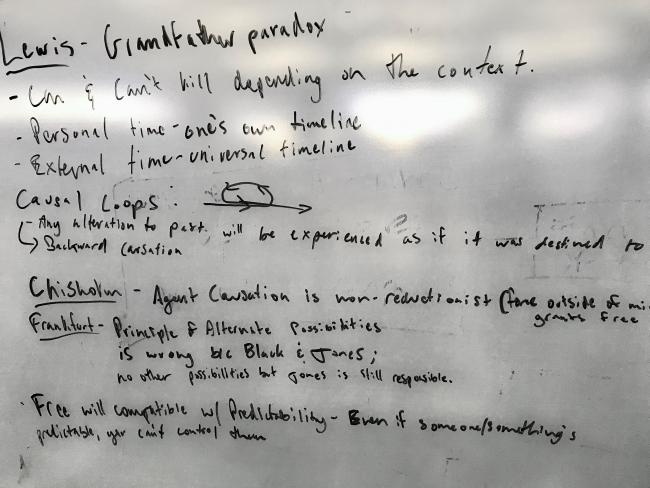 Lewis - Grandfather paradox
- Can & Can't kill depending on the context.
- Personal time - one's own timeline
- External time - universal timeline
Causal Loops :
- Any alteration to past will be experienced as if it was destined to
→ Backward causation
Chisholm - Agent Causation is non-reductionist (force outside of
grants free
Frankfurt - Principle of Alternate Possibilities
is wrong b/c Black & Jones;
no other possibilities but Jones is still responsible.
Free will compatible w/ Predictability - Even if someone/something's
predictable, you can't control them